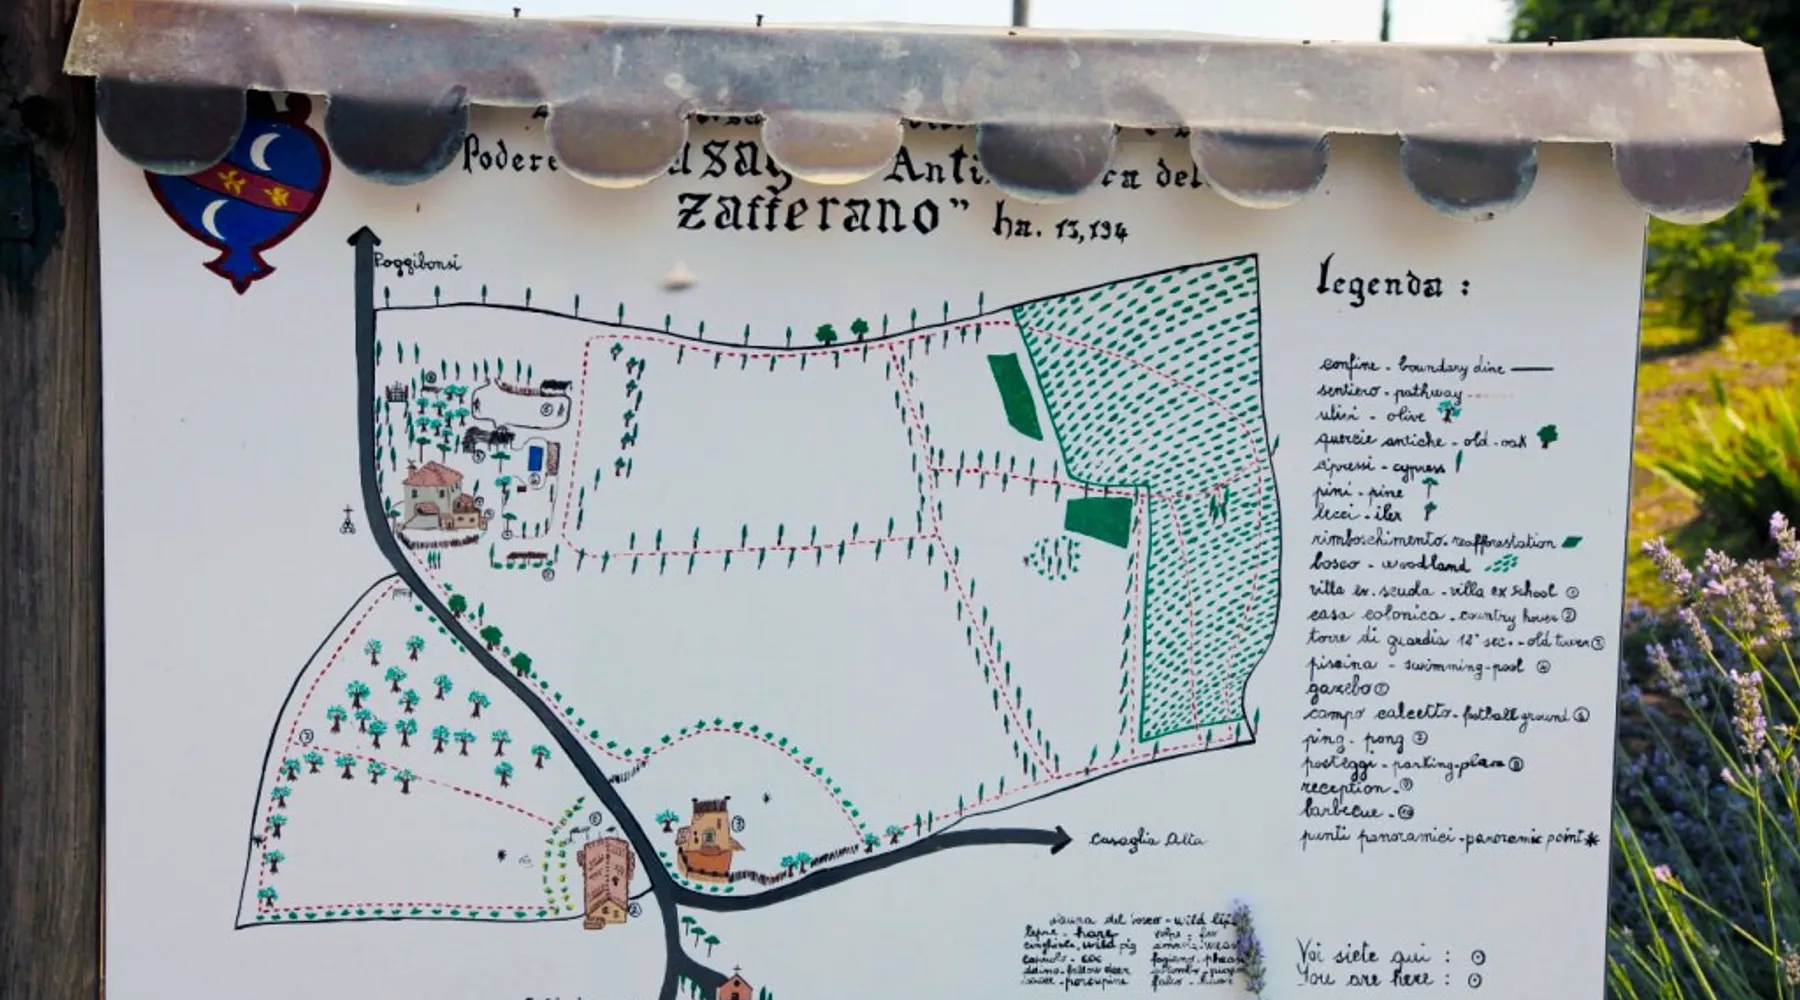 Podere
Anti
del
Zafferano" ha. 13,194
Poggibonsi
legenda :
confine - boundary dine
sentiero - pathway
ulivi - olive
quercie antiche - old-oak
cipressi - cypress
pini - pine
lecci - ilex
rimboschimento - reafforestation
bosco - woodland
villa ex scuola - villa ex school ①
casa colonica - country house ②
torre di guardia 12° sec. - old tower ③
piscina - swimming-pool ④
gazebo ⑤
campo calcetto - football ground ⑥
ping-pong ⑦
posteggi - parking-place ⑧
reception - ⑨
barbecue - ⑩
punti panoramici - panoramic point *
Casaglia Alta
fauna del bosco - wild life
lepre - hare
volpe - fox
cinghiale - wild pig
capriolo - roe
fagiano - pheas
daino - fallow deer
istrice - porcupine
Voi siete qui : ⊙
You are here : ⊙